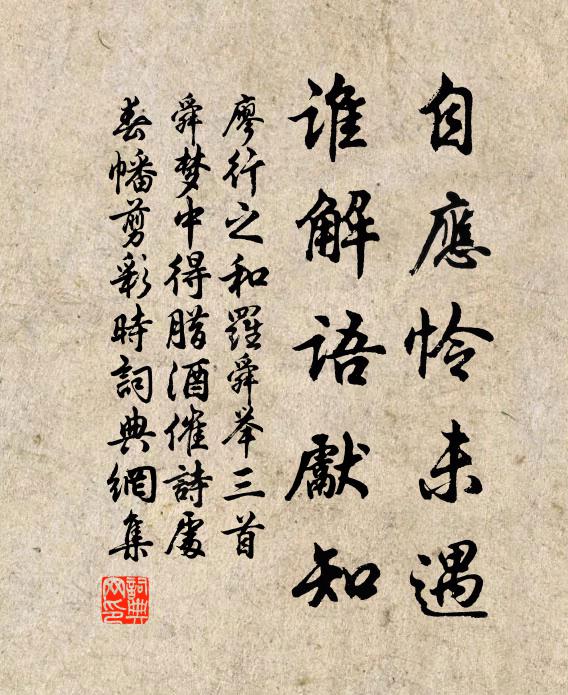 自應怜未遇
誰解語獻知
廖行之和羅舜举三首
舜梦中得腊酒催詩處
春幡剪彩時詞典網集
詞典网印